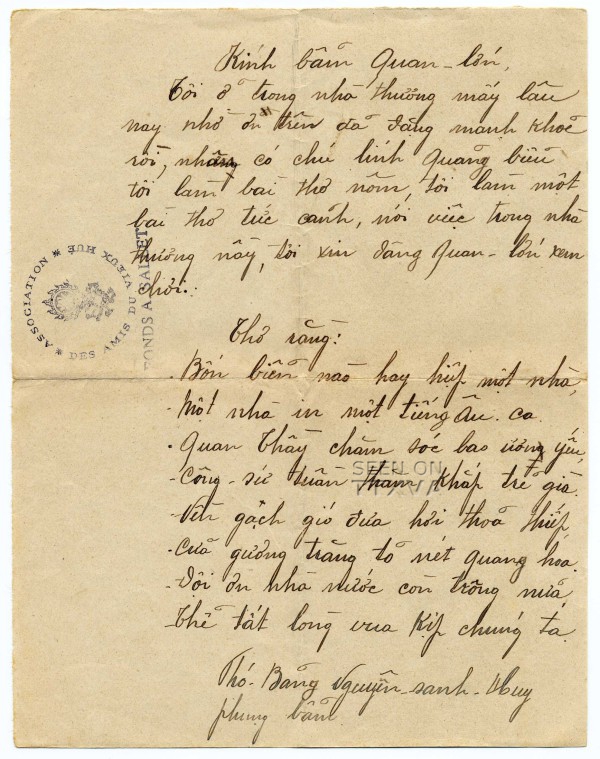 Kính bẩm Quan-lớn,
Tôi ở trong nhà thương mấy lâu
nay nhờ ơn trên đã đặng mạnh khoẻ
rồi, nhưng có chú lính Quảng biểu
tôi làm bài thơ nôm, tôi làm một
bài thơ tức cảnh, nói việc trong nhà
thương nầy, tôi xin dâng Quan-lớn xem
chơi.
ASSOCIATION DES AMIS DU VIEUX HUE
FONDS A SALLET
Thơ rằng:
- Bốn biển nào hay hiệp một nhà,
- Một nhà in một tiếng Âu. ca.
- Quan Thầy chăm sóc bao ương yếu,
- Công-sứ tuần thăm khắp trẻ già.
SEEN ON
- Vên gạch gió đưa hơi thoả thiếp,
- Cửa gương trăng tỏ nét quang hoa.
- Đội ơn nhà nước còn trông nữa,
- Thể tất lòng vua kịp chúng ta.
Thơ-Bảng Nguyễn-sanh-Huy
phụng bẩm